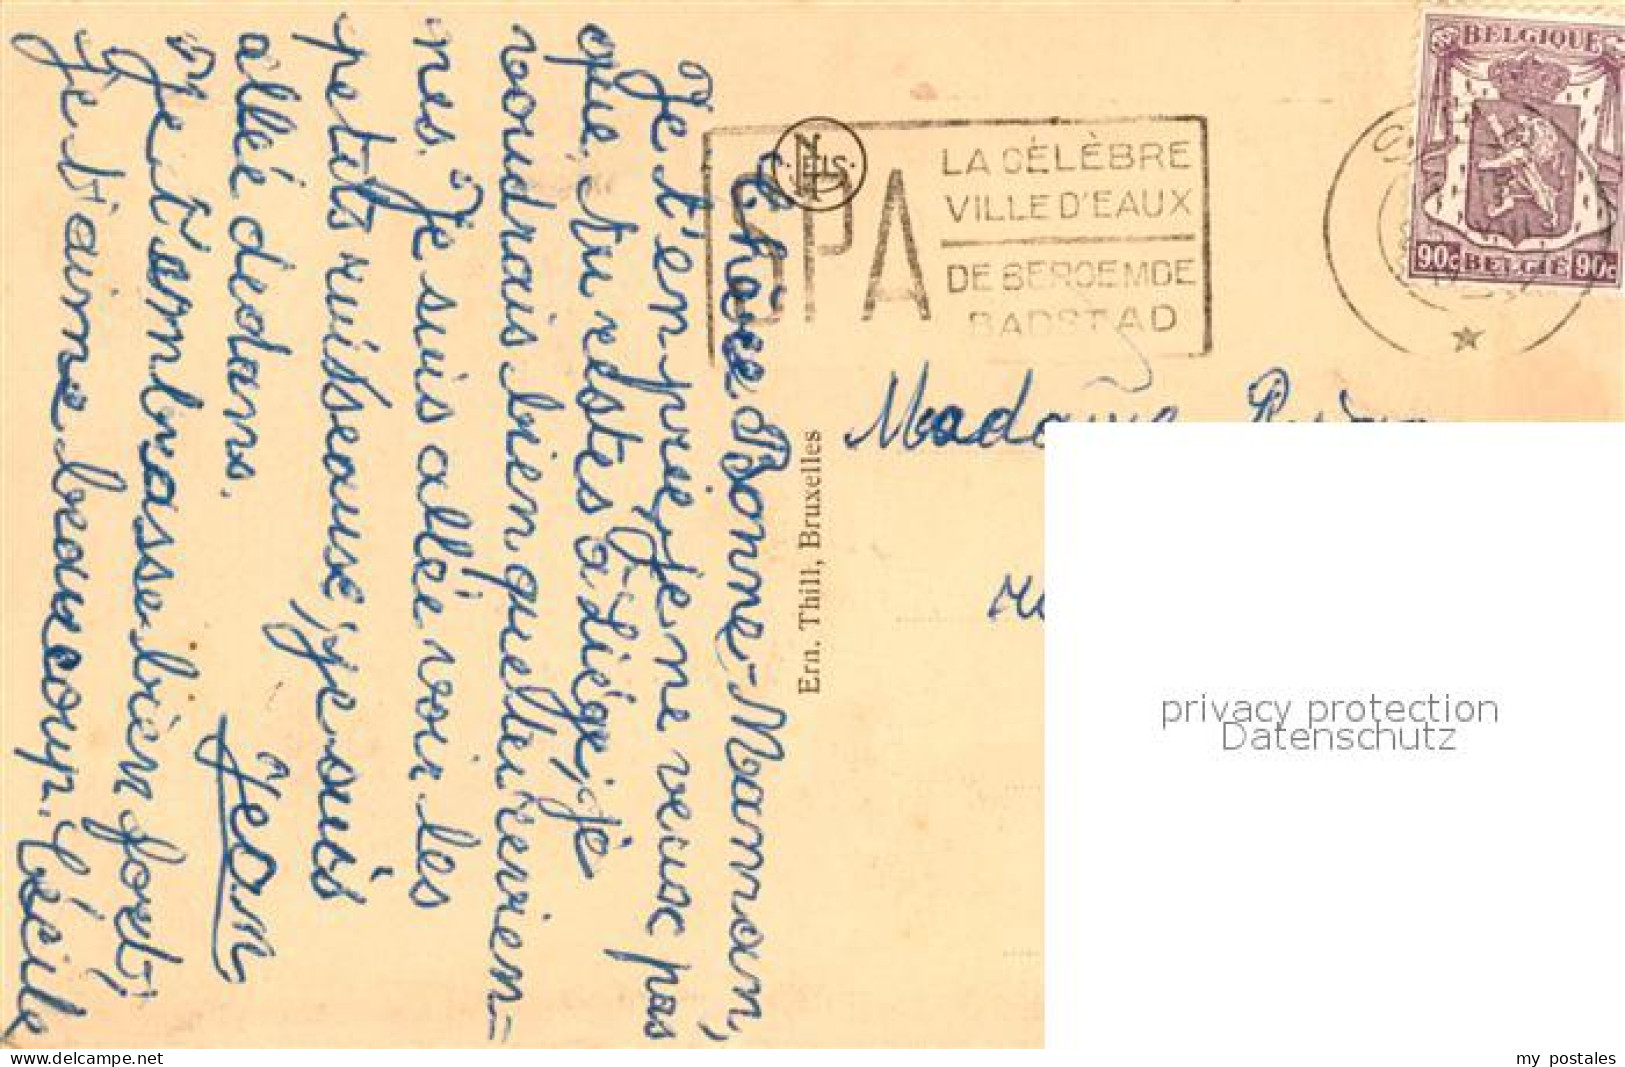 Chère Bonne-Maman,
Je t'en prie, je ne veux pas
que tu restes à Liége, je
voudrais bien que tu revien=
nes. Je suis allée voir les
petits ruisseause, je suis
allé dedans.
Jean
Je t'embrasse bien fort,
Je t'aime beaucoup. Cécile
NELS
SPA
LA CÉLÈBRE
VILLE D'EAUX
DE BEROEMDE
BADSTAD
BELGIQUE
90c BELGIË 90c
Ern. Thill, Bruxelles
Madame
privacy protection
Datenschutz
www.delcampe.net
my_postales